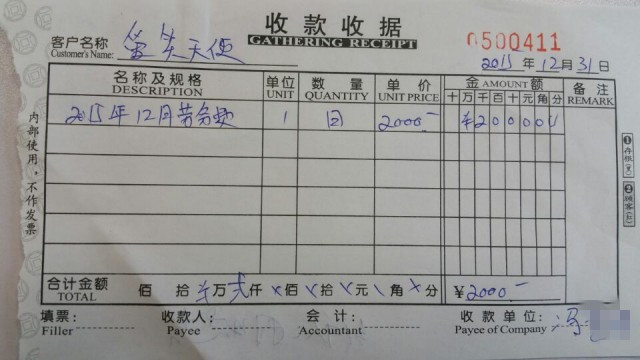 收款收据
GATHERING RECEIPT
0500411
客户名称 天使
Customer's Name:
2015年12月31日
名称及规格 单位 数量 单价 金AMOUNT额 备注
DESCRIPTION UNIT QUANTITY UNIT PRICE 十万千百十元角分 REMARK
2015年12月劳务费 1 2000- ¥200000
内部使用,不作发票
①存根(白)
②顾客(红)
合计金额 佰拾万贰仟×佰×拾×元\角×分 ¥2000-
TOTAL
填票: 收款人: 会计: 收款单位: 冯
Filler Payee Accountant Payee of Company